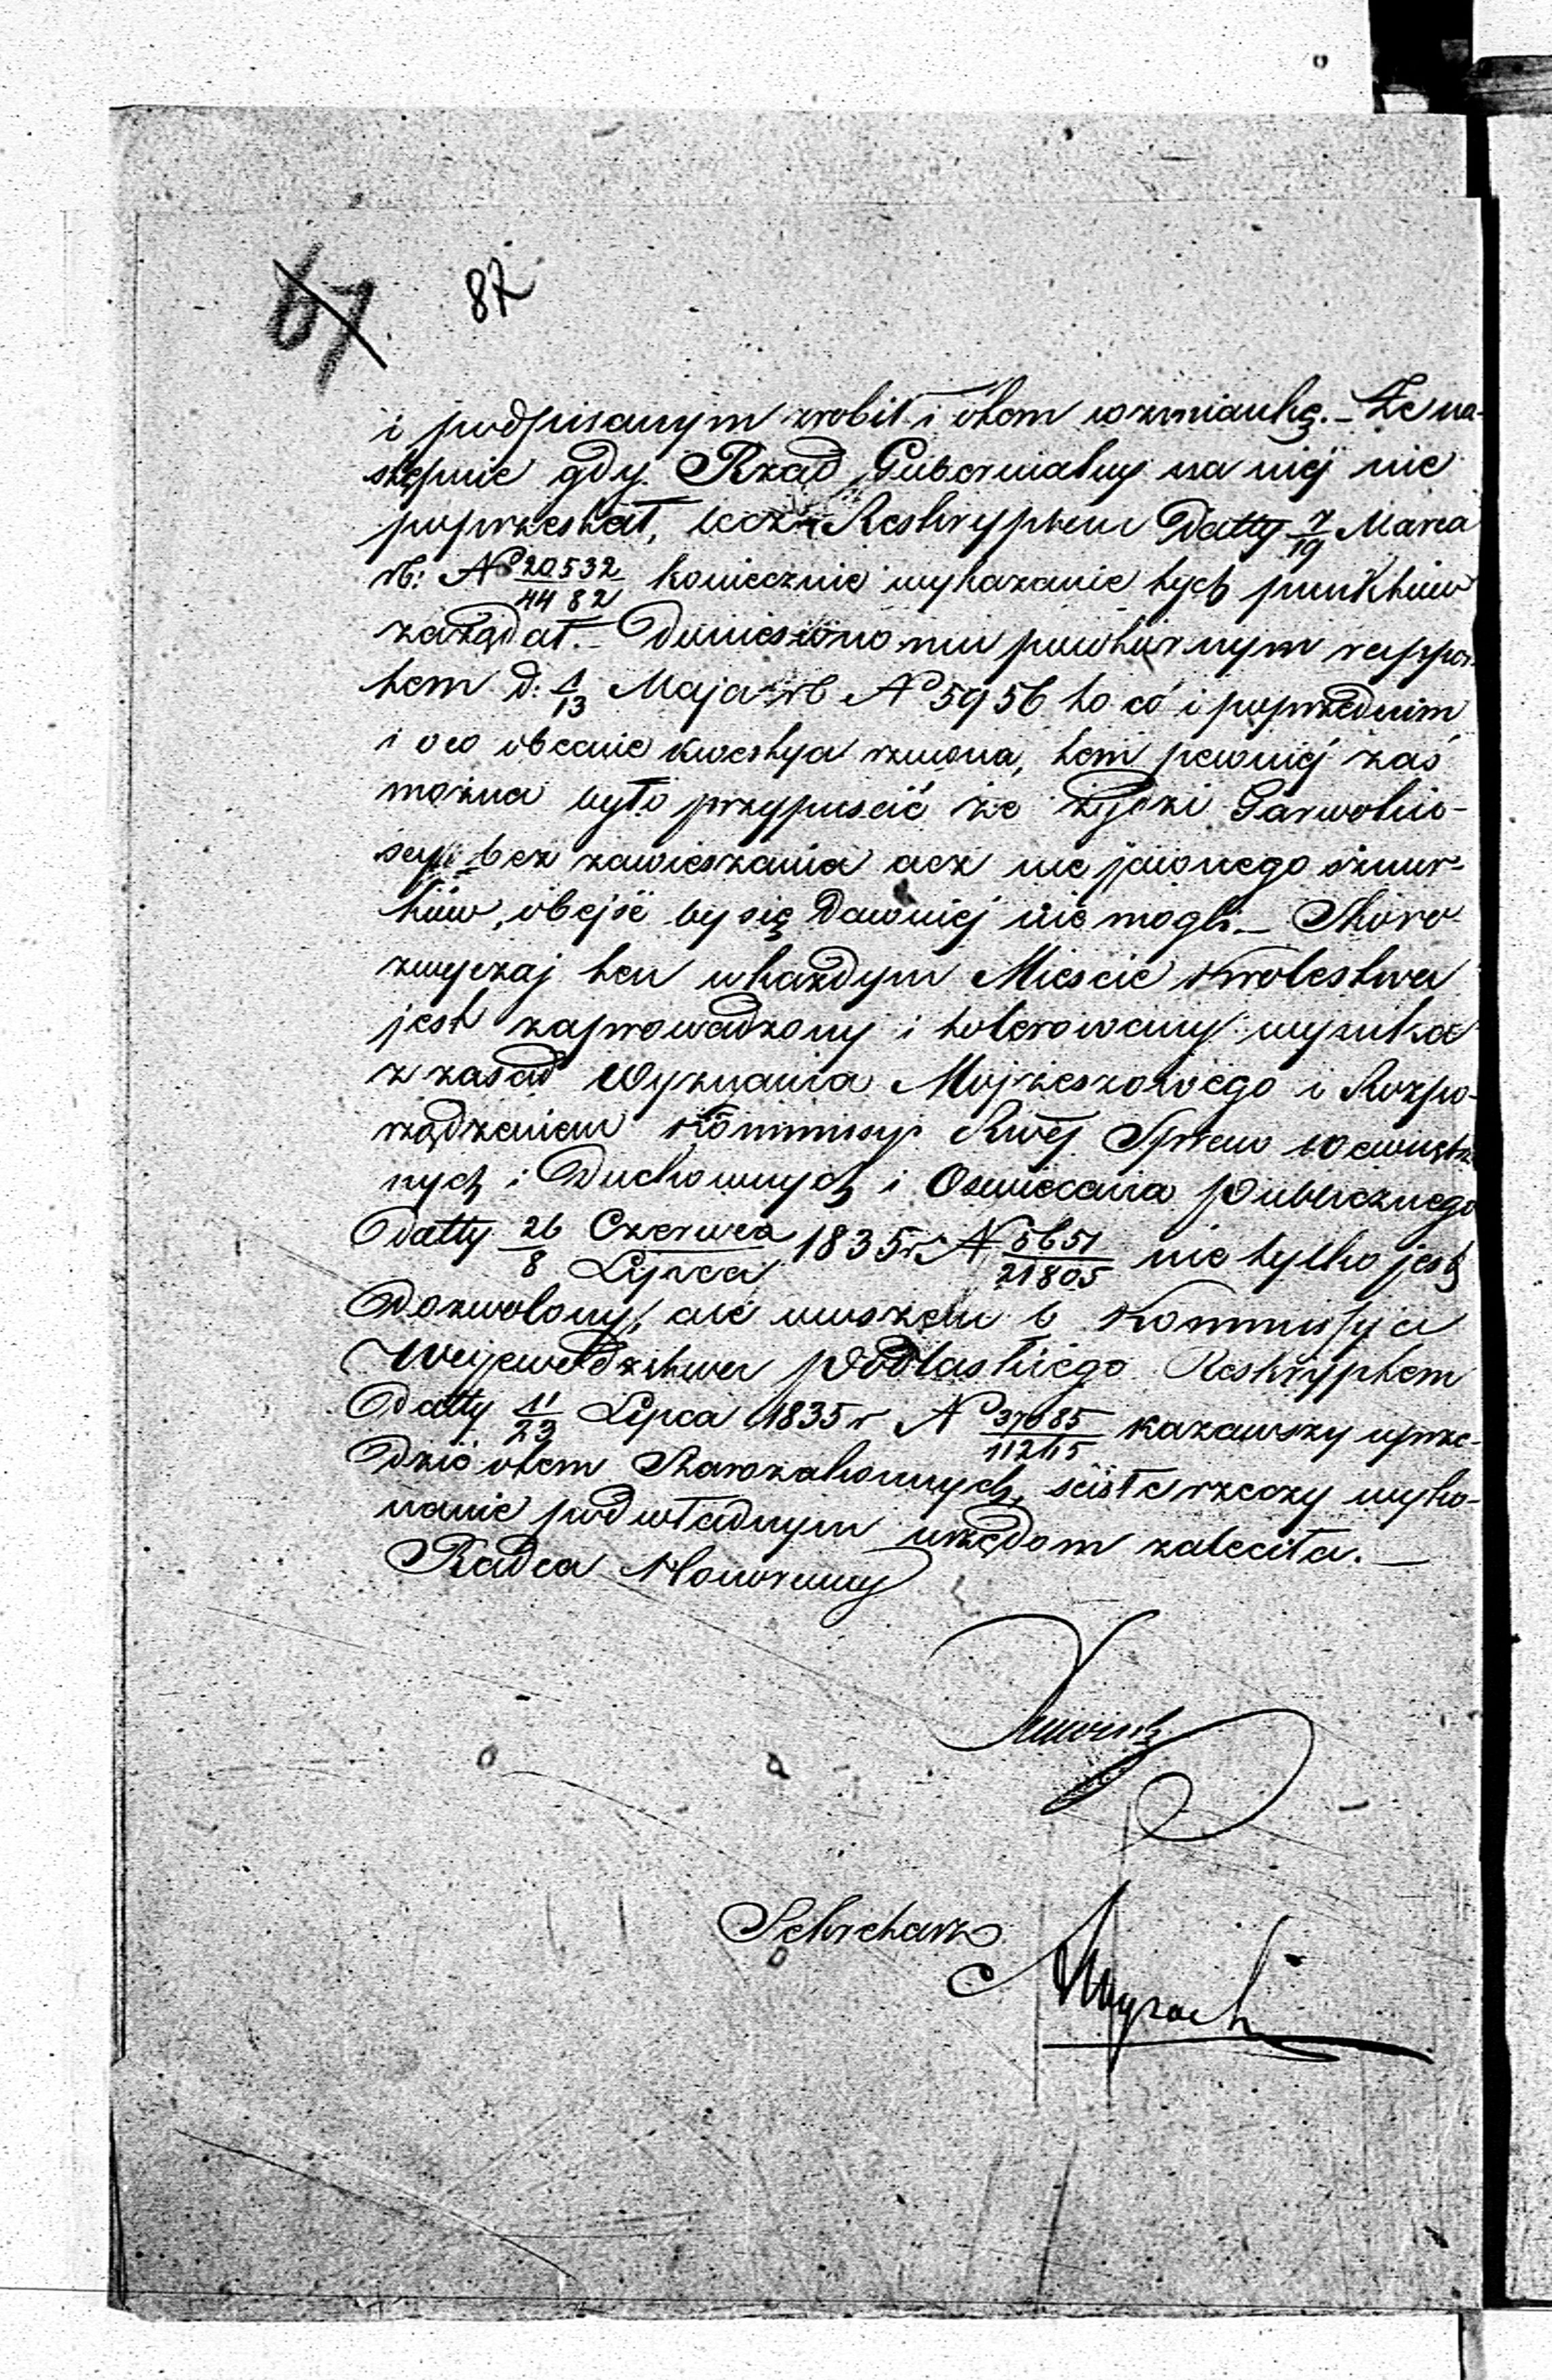 67 87
i podpisanym zrobił i otem wzmiankę. – Że na-
stępnie gdy Rząd Gubernialny na niéj nie
poprzestał, lecz Reskryptem Datty 7/19 Marca
rb: N° 20532/4482 koniecznie wykazanie tych punktów
zażądał. – Doniesiono mu powtórnym rappor-
tem d: 1/13 Maja rb N° 5956 to có i poprzednim
i o co obecnie kwestya rzucona, tem pewniéj zaś
można było przypuścić że żydzi Garwoliń-
scy bez zawieszania acz nie jawnego sznur-
ków, obejść by się dawniéj nie mogli – Skoro
zwyczaj ten w każdym Mieście Królestwa
jest zaprowadzony i tolerowany wynika
z zasad Wyznania Mojżeszowego i Rozpo-
rządzeniem Kommissyi Rwéj Spraw Wewnętrz
nych i Duchownych i Oświecania Publicznego
Datty 26 Czerwca/8 Lipca 1835 r. N 5651/21805 nie tylko jest
Dozwolony, ale wuszem b Kommissya
Wojewodztwa Podlaskiego Reskryptem
Datty 11/23 Lipca 1835 r N° 37685/11215 kazawszy uprze-
dzić otem Starozakonnych, sciste rzeczy wyko-
nanie podwładnym urzędom zaleciła. –
Radca Honorowy
Sekretarz